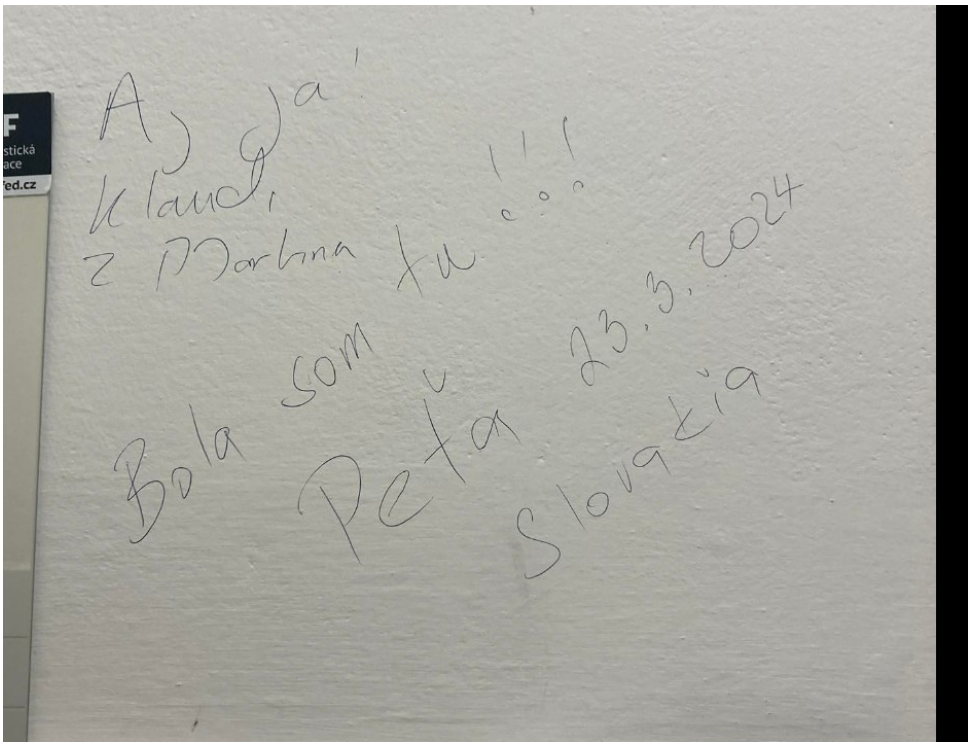 F
stická
ace
fed.cz
Aj ja!
Klaudi
z Martina
Bola som tu !!!
Peťa 23.3.2024
Slovakia